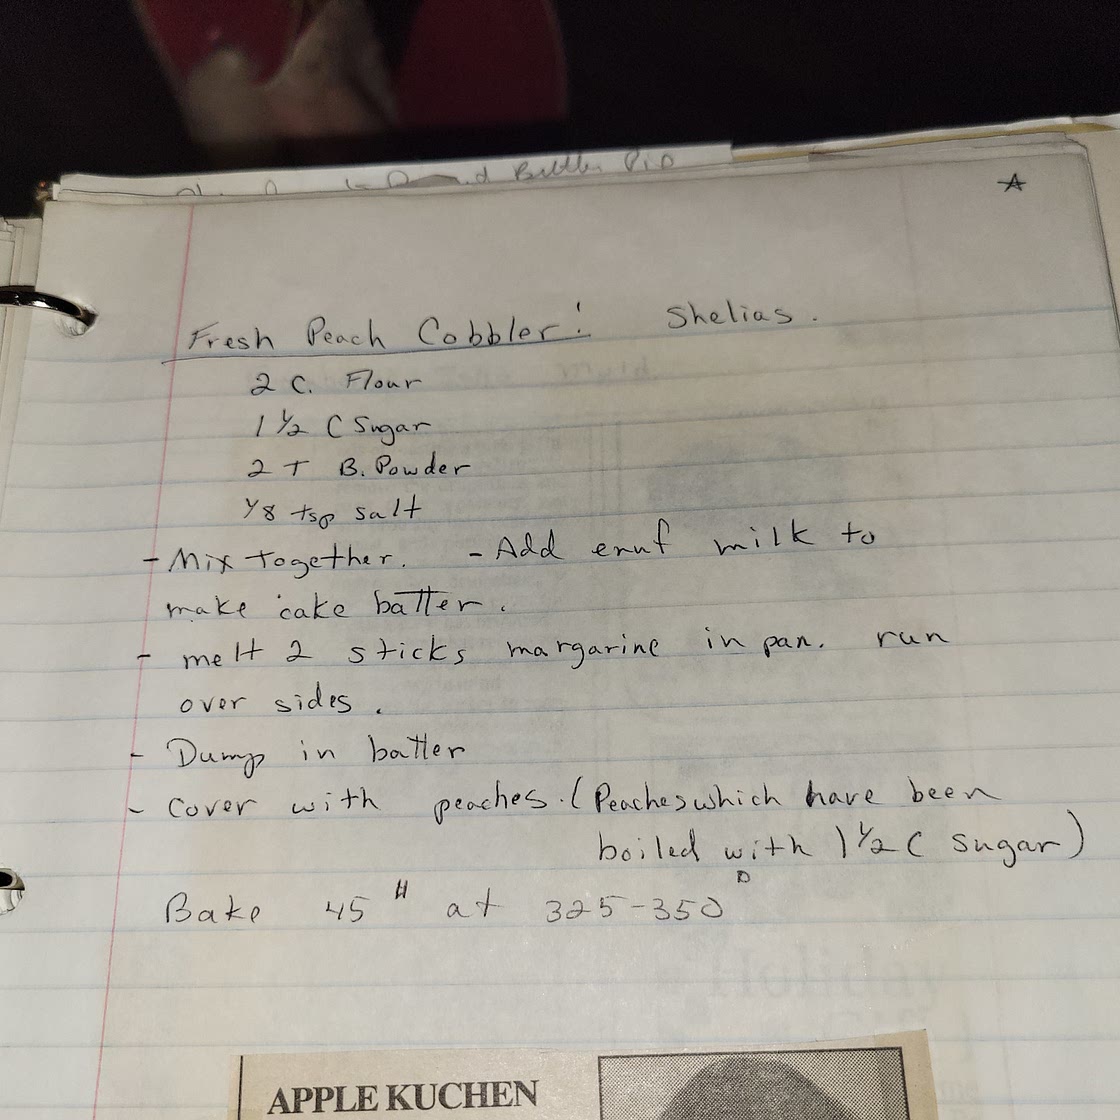 Butter Pie
Fresh Peach Cobbler! Shelias.
2 C. Flour
1 1/2 C Sugar
2 T B. Powder
1/8 tsp salt
- Mix Together. - Add enuf milk to
make cake batter.
- melt 2 sticks margarine in pan. run
over sides.
- Dump in batter
- Cover with peaches. (Peaches which have been
boiled with 1 1/2 C sugar)
Bake 45" at 325-350°
Holiday
APPLE KUCHEN